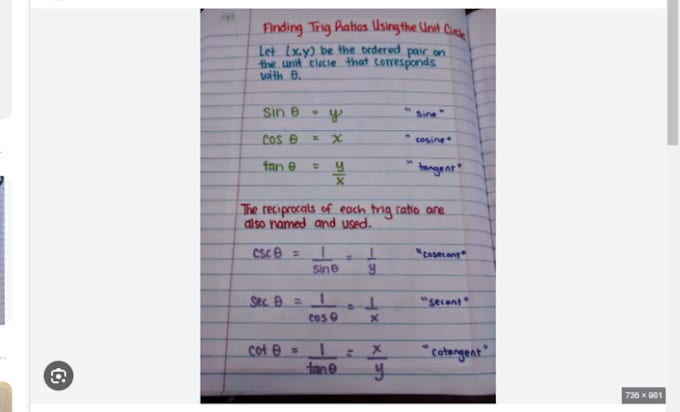 Finding Trig Ratios Using the Unit Circle
Let (x,y) be the ordered pair on
the unit circle that corresponds
with θ.
sin θ = y "sine"
cos θ = x "cosine"
tan θ = y/x "tangent"
The reciprocals of each trig ratio are
also named and used.
csc θ = 1/sin θ = 1/y "cosecant"
sec θ = 1/cos θ = 1/x "secant"
cot θ = 1/tan θ = x/y "cotangent"
736 × 981